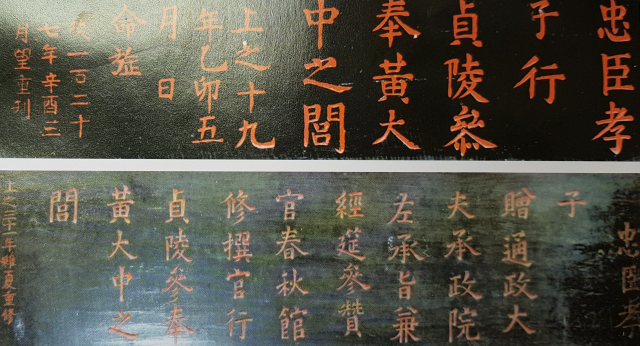 忠臣孝
子行
貞陵叅
奉黃大
中之閭
上之十九
年乙卯五
月 日
命旌
後一百二十
七年辛酉三
月望重刊
忠臣孝
子
贈通政大
夫承政院
左承旨兼
經筵參贊
官春秋館
修撰官行
貞陵參奉
黃大中之
閭
上之三十一年維夏重修